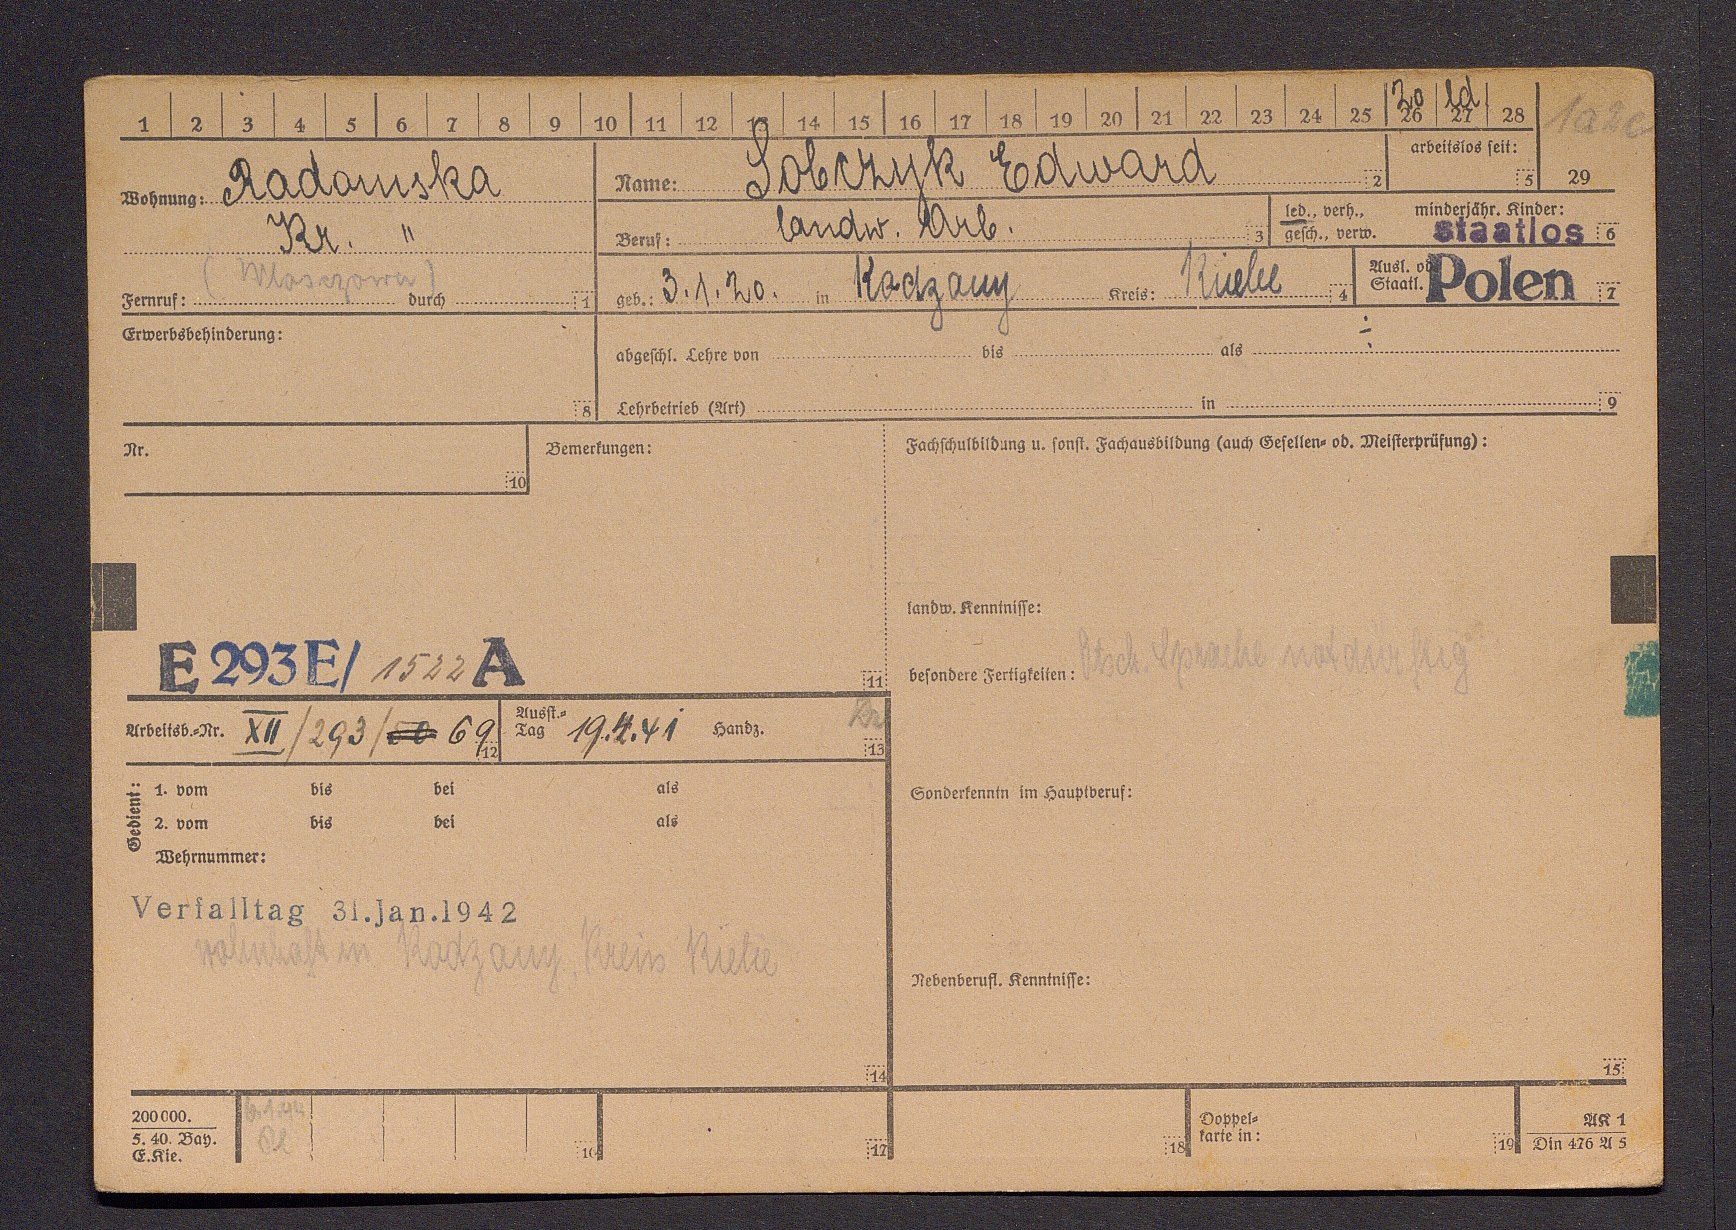 1 2 3 4 5 6 7 8 9 10 11 12 13 14 15 16 17 18 19 20 21 22 23 24 25 26 27 28
20 ld
arbeitslos seit: 5 29
Wohnung: Radomska
Kr. "
(Wloszzowa)
Fernruf: durch 1
Name: Sobczyk Edward 2
Beruf: landw. Arb. 3
led., verh., gesch., verw.
minderjähr. Kinder: 6
staatlos
geb.: 3.1.20. in Kadzany Kreis: Kielce 4
Ausl. od. Staatl. Polen 7
Erwerbsbehinderung: 8
abgeschl. Lehre von bis als ÷
Lehrbetrieb (Art) in 9
Nr. 10
Bemerkungen:
Fachschulbildung u. sonst. Fachausbildung (auch Gesellen- od. Meisterprüfung):
landw. Kenntnisse:
E 293 E/ 1522 A 11
besondere Fertigkeiten: Dtsch. Sprache notdürftig
Arbeitsb.-Nr. XII/293/50 69 12
Ausst.-Tag 19.4.41 Handz. 13
Gedient:
1. vom bis bei als
2. vom bis bei als
Wehrnummer:
Sonderkenntn im Hauptberuf:
Verfalltag 31.Jan.1942
wohnhaft in Kadzany, Kreis Kielce
Nebenberufl. Kenntnisse:
14 15
200000.
5. 40. Bay.
E.Kie.
16 17 18
Doppel-
karte in: 19
AK 1
Din 476 A 5